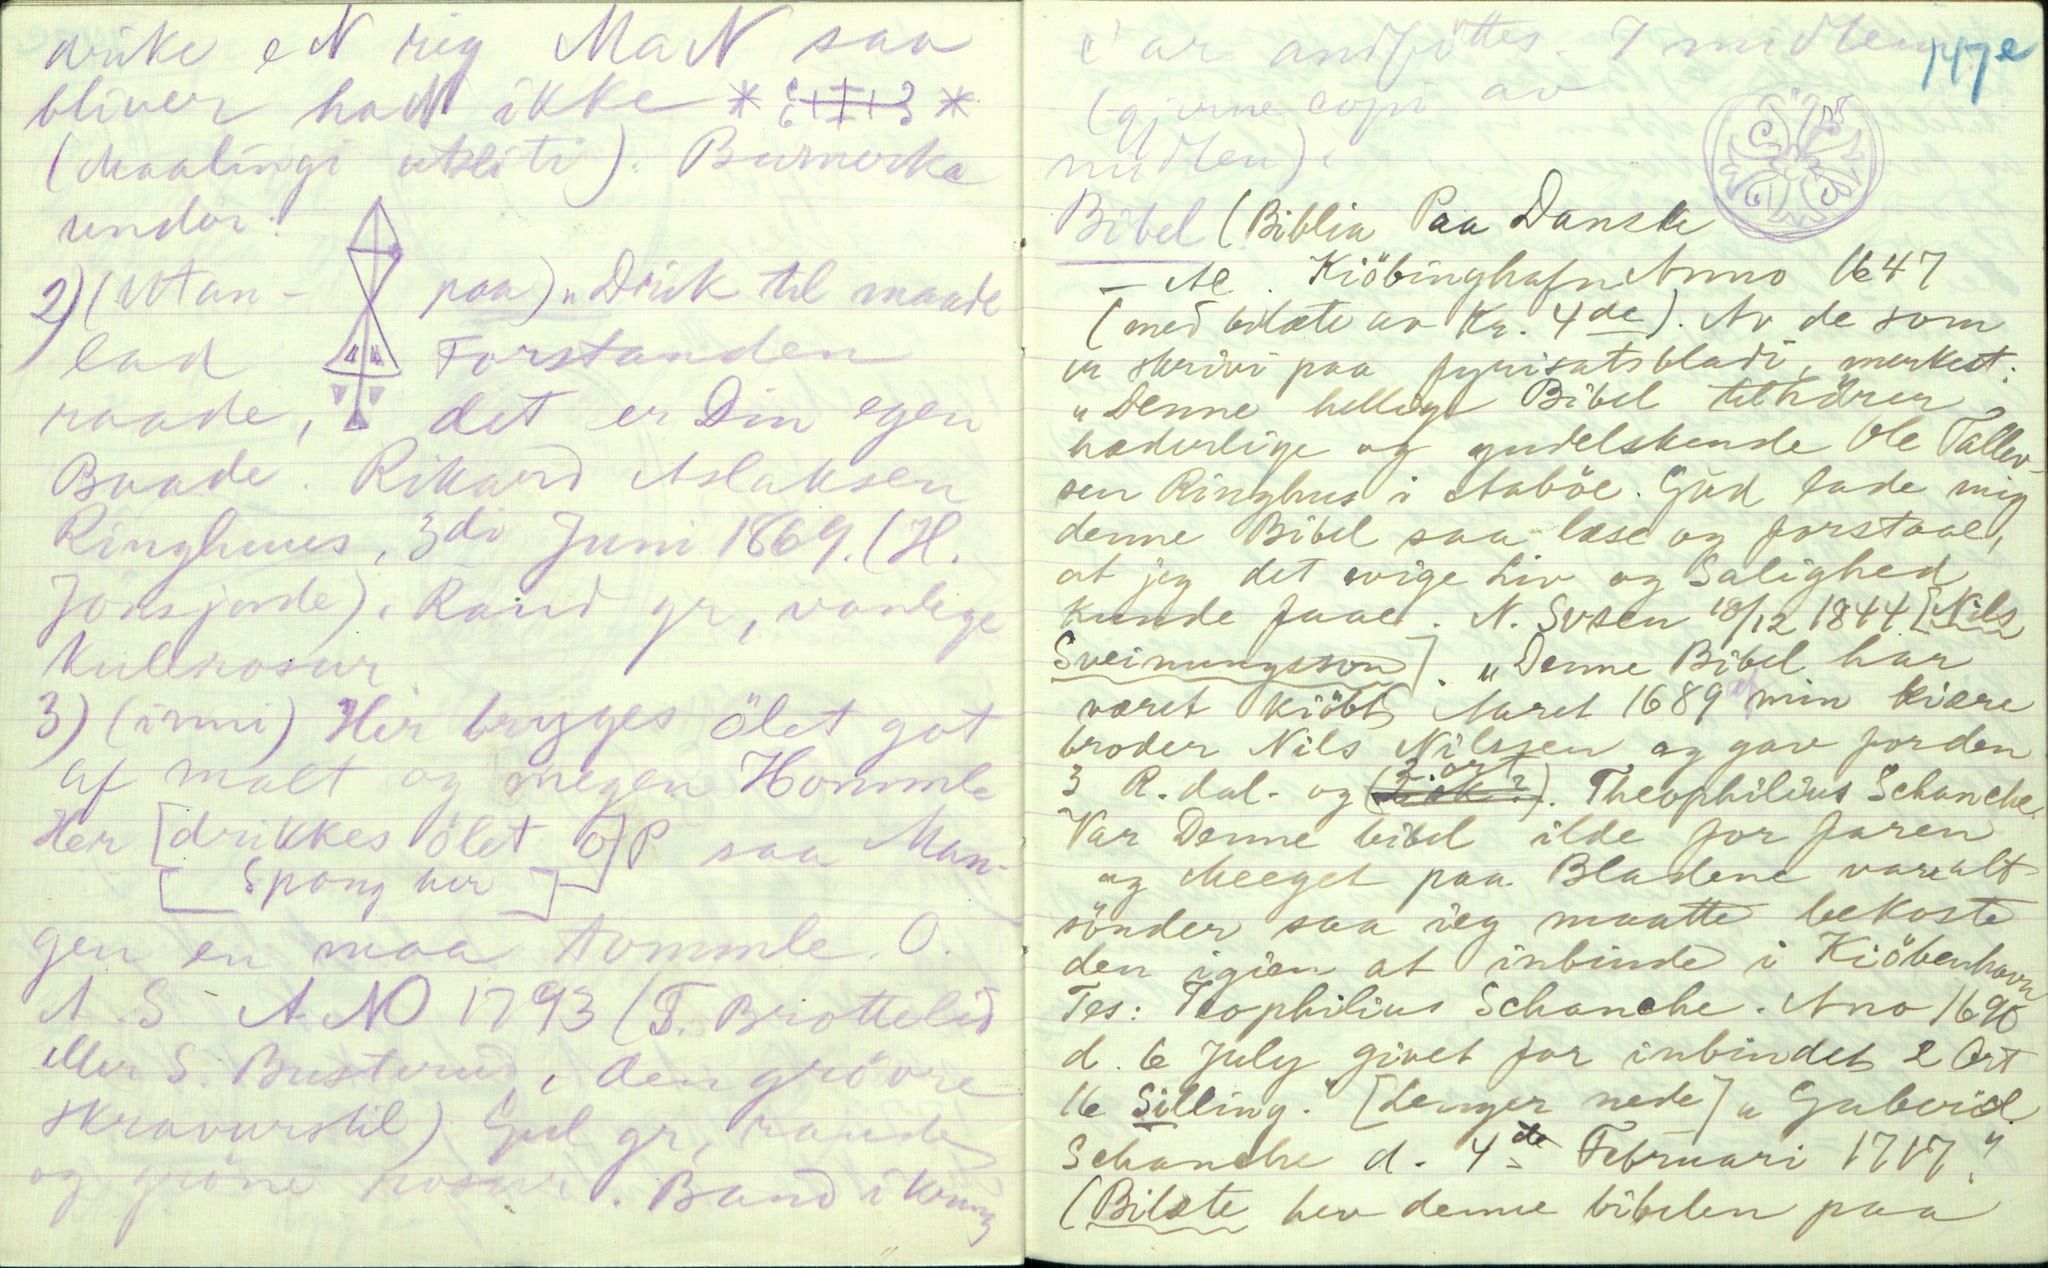 drike eN rig MaN saa
bliver haN ikke
(maalingi utsliti). Bumerke
under:
2) (Utan-
paa) „Drik til maade
lad Forstanden
raade, det er Din egen
Baade. Rikard Aslaksen
Ringhuus, 3di Juni 1869. (H.
Jönsjorde). Raud gr, vanlege
kullrosur
3) (inni) Hir brygges ölet got
af malt og megen Hommle
Her [drikkes ölet o]P saa Man-
[Spong her]
gen en maa tommle. O.
A. S ANO 1793 (T. Brottelid
eller S. Busterud, den grövre
skravurstil) Gul gr, raude
og gröne rosur. Band ikring
147e
i ar andföttes. I midten
(gjerne copi av
midten).
Bibel (Biblia Paa Danske
Kiöbinghafn Anno 1647
(med bilæte av Kr. 4de). Av de som
er skrivi paa fyrisatsbladi, merkest:
„Denne hellige Bibel tilhörer
hæderlige og gudelskende Ole Tallev-
sen Ringhus i Aaböe. Gud lade mig
denne Bibel saa læse og forstaae,
at jeg det evige Liv og Salighed
kunde faae. N. Svsen 18/12 1844 [Nils
Sveinungsson]. „Denne Bibel har
været kiöbt Aaret 1689 af min kiære
broder Nils Nilssen og gav for den
3 R.dal. og (2 ort). Theophilius Schanche.
Var Denne bibel ilde for faren
og Meeget paa Bladene var alt
sönder saa ieg maatte bekoste
den igien at inbinde i Kiöbenhavn
Tes: Teophilius Schanche. Ano 1690
d. 6 July givet for inbindet 2 Ort
16 Silling." [Lenger nede] „Gabriel
Schanche d. 4de Februari 1717"
(Bilæte hev denne bibelen paa